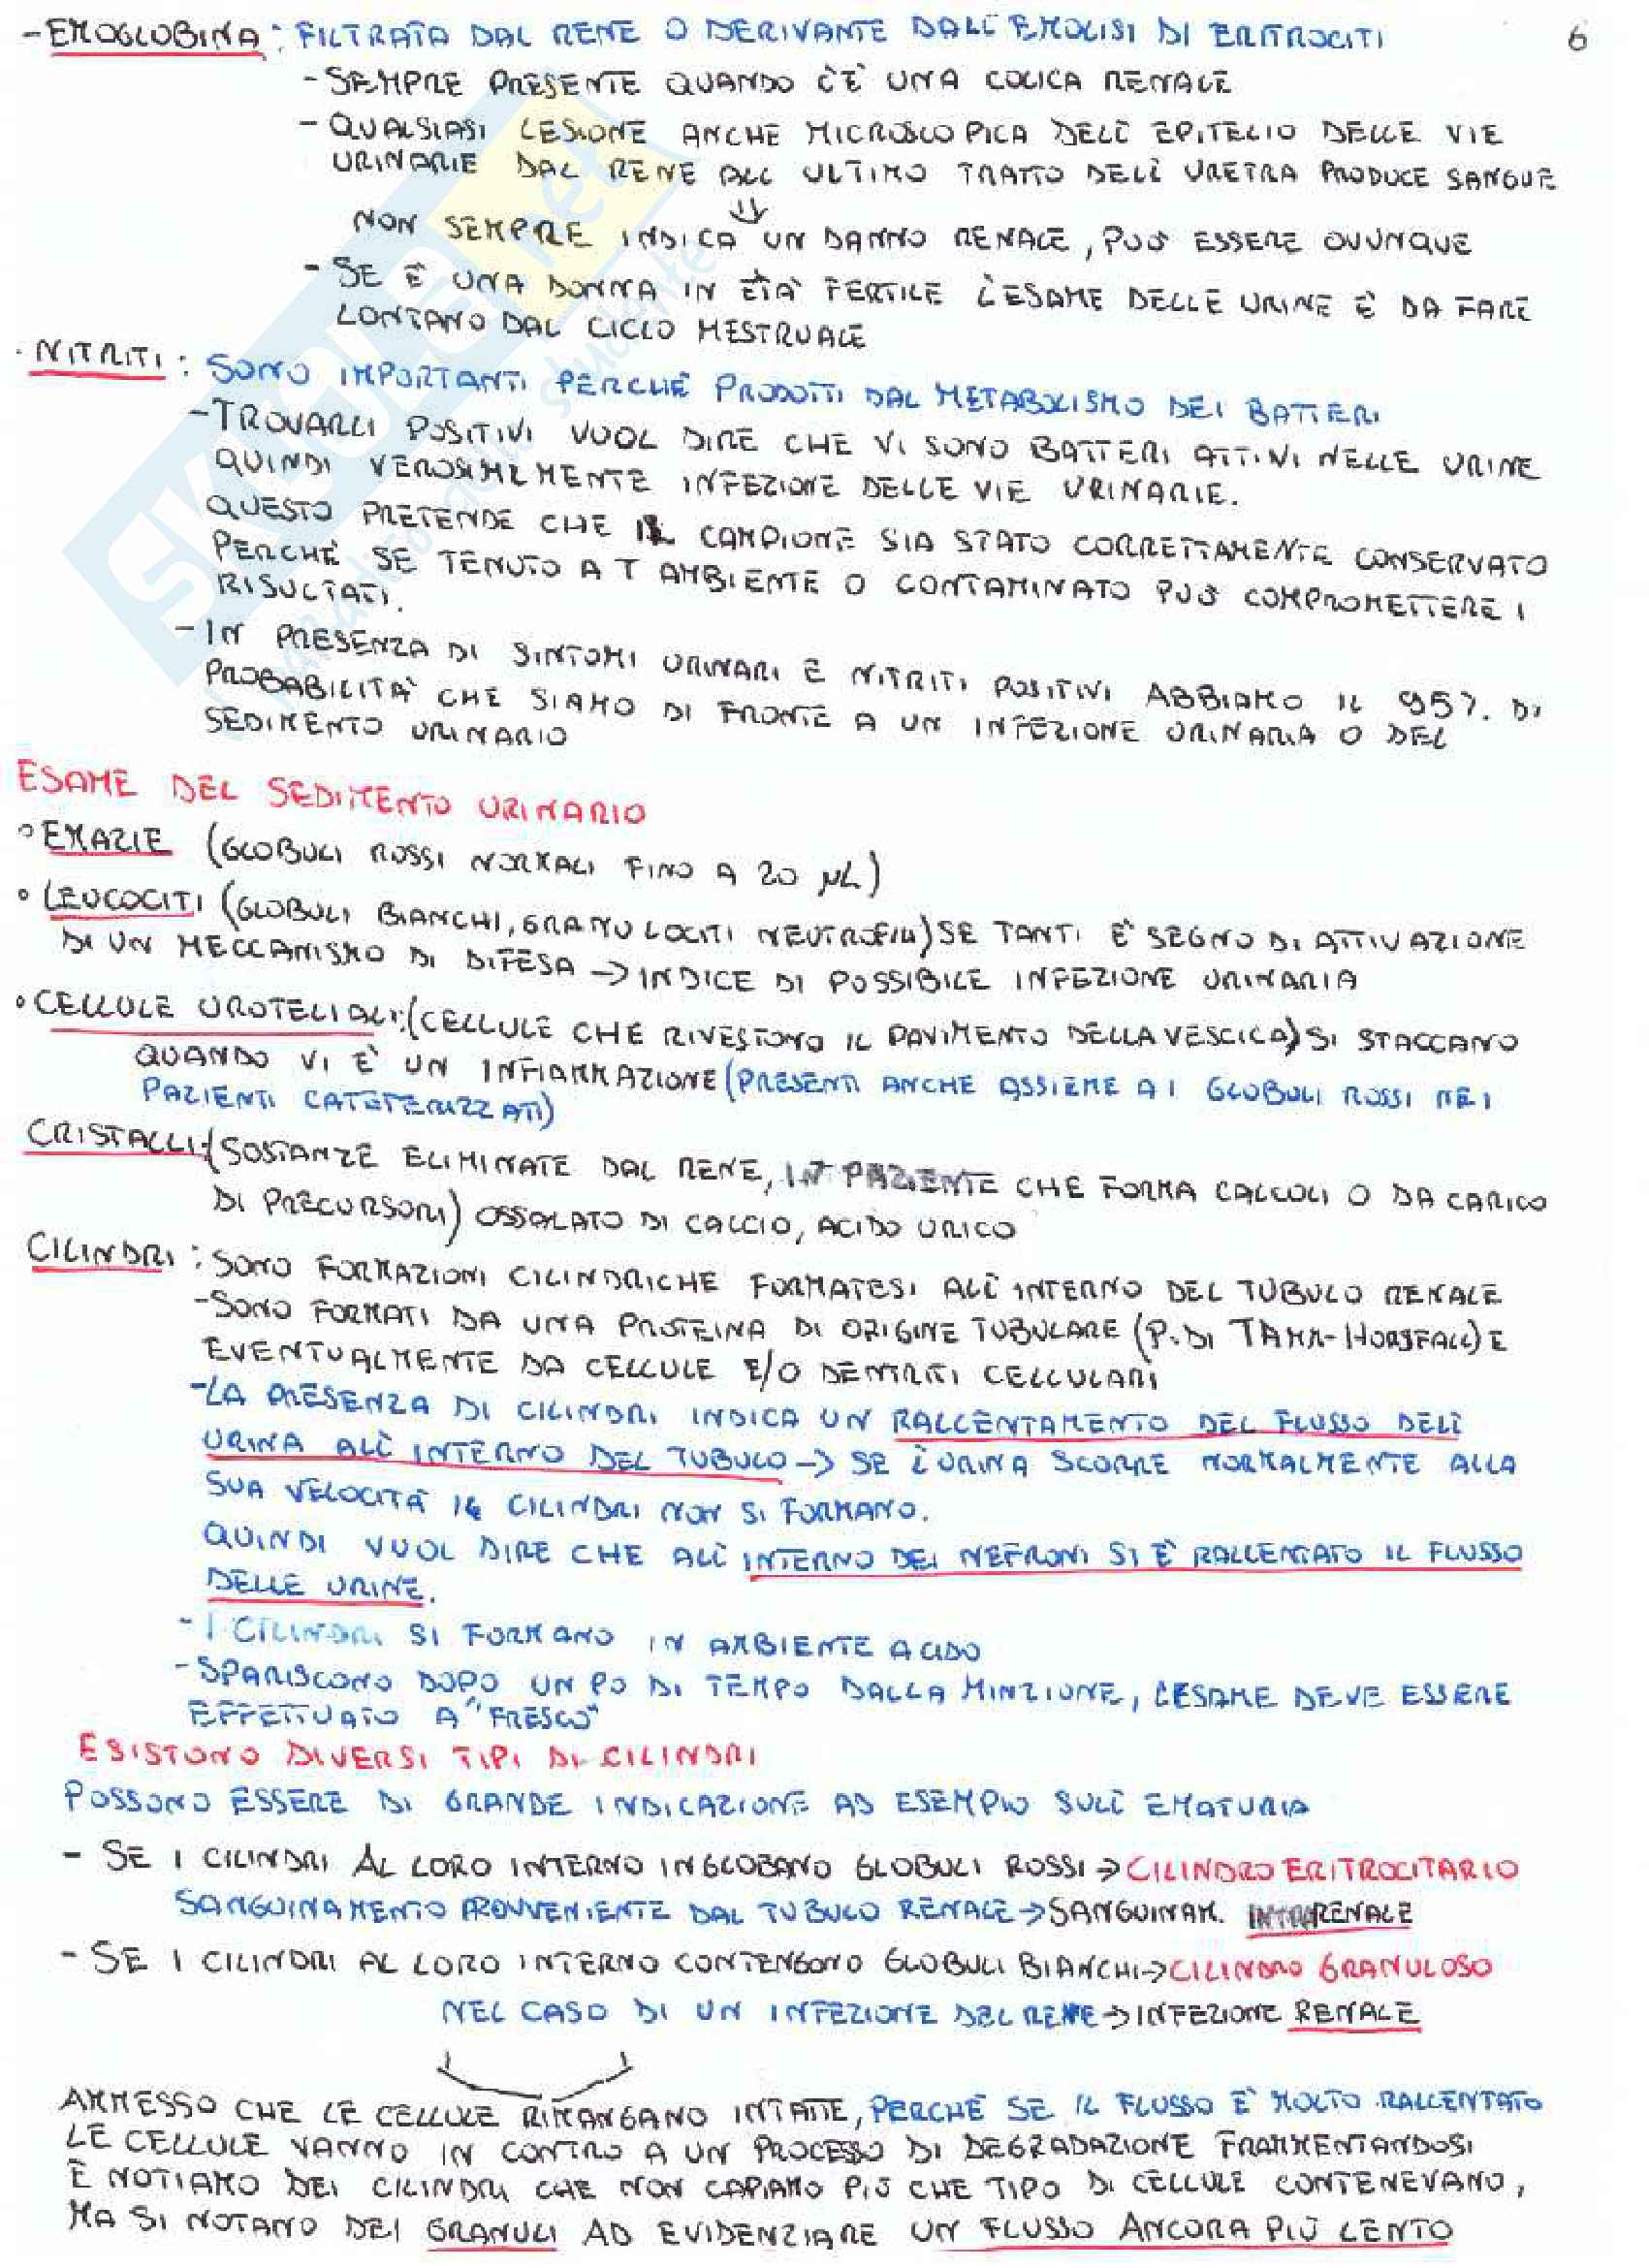 - EMOGLOBINA: FILTRATA DAL RENE O DERIVANTE DALL'EMOLISI DI ERITROCITI 6
- SEMPRE PRESENTE QUANDO C'È UNA COLICA RENALE
- QUALSIASI LESIONE ANCHE MICROSCOPICA DELL'EPITELIO DELLE VIE
URINARIE DAL RENE ALL'ULTIMO TRATTO DELL'URETRA PRODUCE SANGUE
⇓
NON SEMPRE INDICA UN DANNO RENALE, PUÒ ESSERE OVUNQUE
- SE È UNA DONNA IN ETÀ FERTILE L'ESAME DELLE URINE È DA FARE
LONTANO DAL CICLO MESTRUALE
· NITRITI: SONO IMPORTANTI PERCHÉ PRODOTTI DAL METABOLISMO DEI BATTERI
- TROVARLI POSITIVI VUOL DIRE CHE VI SONO BATTERI ATTIVI NELLE URINE
QUINDI VEROSIMILMENTE INFEZIONE DELLE VIE URINARIE.
QUESTO PRETENDE CHE IL CAMPIONE SIA STATO CORRETTAMENTE CONSERVATO
PERCHÉ SE TENUTO A T AMBIENTE O CONTAMINATO PUÒ COMPROMETTERE I
RISULTATI.
- IN PRESENZA DI SINTOMI URINARI E NITRITI POSITIVI ABBIAMO IL 95% DI
PROBABILITÀ CHE SIAMO DI FRONTE A UN INFEZIONE URINARIA O DEL
SEDIMENTO URINARIO
ESAME DEL SEDIMENTO URINARIO
° EMAZIE (GLOBULI ROSSI NORMALI FINO A 20 µL)
° LEUCOCITI (GLOBULI BIANCHI, GRANULOCITI NEUTROFILI) SE TANTI È SEGNO DI ATTIVAZIONE
DI UN MECCANISMO DI DIFESA → INDICE DI POSSIBILE INFEZIONE URINARIA
° CELLULE UROTELIALI: (CELLULE CHE RIVESTONO IL PAVIMENTO DELLA VESCICA) SI STACCANO
QUANDO VI È UN INFIAMMAZIONE (PRESENTI ANCHE ASSIEME AI GLOBULI ROSSI NEI
PAZIENTI CATETERIZZATI)
CRISTALLI: (SOSTANZE ELIMINATE DAL RENE, IN PAZIENTE CHE FORMA CALCOLI O DA CARICO
DI PRECURSORI) OSSALATO DI CALCIO, ACIDO URICO
CILINDRI: SONO FORMAZIONI CILINDRICHE FORMATESI ALL'INTERNO DEL TUBULO RENALE
- SONO FORMATI DA UNA PROTEINA DI ORIGINE TUBULARE (P. DI TAMM-HORSFALL) E
EVENTUALMENTE DA CELLULE E/O DENTRITI CELLULARI
- LA PRESENZA DI CILINDRI INDICA UN RALLENTAMENTO DEL FLUSSO DELL'
URINA ALL'INTERNO DEL TUBULO → SE L'URINA SCORRE NORMALMENTE ALLA
SUA VELOCITÀ I CILINDRI NON SI FORMANO.
QUINDI VUOL DIRE CHE ALL'INTERNO DEI NEFRONI SI È RALLENTATO IL FLUSSO
DELLE URINE.
- I CILINDRI SI FORMANO IN AMBIENTE ACIDO
- SPARISCONO DOPO UN PO DI TEMPO DALLA MINZIONE, L'ESAME DEVE ESSERE
EFFETTUATO A "FRESCO"
ESISTONO DIVERSI TIPI DI CILINDRI
POSSONO ESSERE DI GRANDE INDICAZIONE AD ESEMPIO SULL'EMATURIA
- SE I CILINDRI AL LORO INTERNO INGLOBANO GLOBULI ROSSI → CILINDRO ERITROCITARIO
SANGUINAMENTO PROVVENIENTE DAL TUBULO RENALE → SANGUINAM. INTRARENALE
- SE I CILINDRI AL LORO INTERNO CONTENGONO GLOBULI BIANCHI → CILINDRO GRANULOSO
NEL CASO DI UN INFEZIONE DEL RENE → INFEZIONE RENALE
AMMESSO CHE LE CELLULE RIMANGANO INTATTE, PERCHÉ SE IL FLUSSO È MOLTO RALLENTATO
LE CELLULE VANNO IN CONTRO A UN PROCESSO DI DEGRADAZIONE FRAMMENTANDOSI
E NOTIAMO DEI CILINDRI CHE NON CAPIAMO PIÙ CHE TIPO DI CELLULE CONTENEVANO,
MA SI NOTANO DEI GRANULI AD EVIDENZIARE UN FLUSSO ANCORA PIÙ LENTO
SKUOLA.net